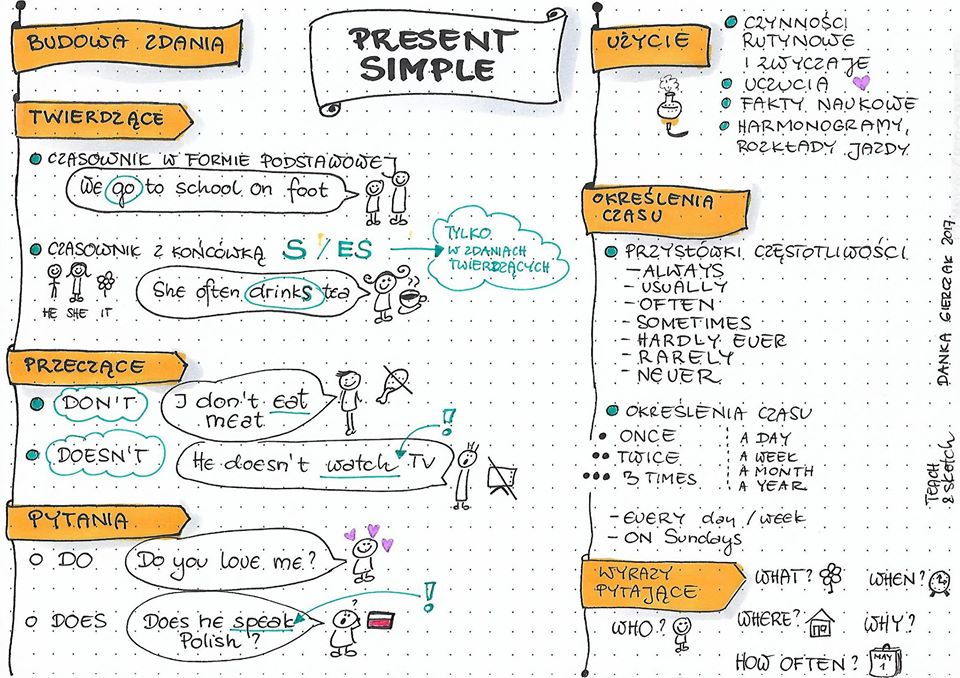 PRESENT
SIMPLE
BUDOWA ZDANIA
TWIERDZĄCE
CZASOWNIK W FORMIE PODSTAWOWEJ
We go to school on foot
CZASOWNIK Z KOŃCÓWKĄ S / ES
TYLKO
W ZDANIACH
TWIERDZĄCYCH
HE SHE IT
She often drinks tea
PRZECZĄCE
DON'T
I don't eat
meat
DOESN'T
He doesn't watch TV
!
PYTANIA
DO
Do you love me?
DOES
Does he speak
Polish?
?
!
UŻYCIE
CZYNNOŚCI
RUTYNOWE
I ZWYCZAJE
UCZUCIA
FAKTY NAUKOWE
HARMONOGRAMY,
ROZKŁADY JAZDY
OKREŚLENIA
CZASU
PRZYSŁÓWKI CZĘSTOTLIWOŚCI
- ALWAYS
- USUALLY
- OFTEN
- SOMETIMES
- HARDLY EVER
- RARELY
- NEVER
OKREŚLENIA CZASU
ONCE
TWICE
3 TIMES
A DAY
A WEEK
A MONTH
A YEAR
- EVERY day / week
- ON Sundays
WYRAZY
PYTAJĄCE
WHAT?
WHEN?
WHO?
WHERE?
WHY?
HOW OFTEN?
MAY
1
TEACH
& SKETCH
DANKA GIERCZAK 2017